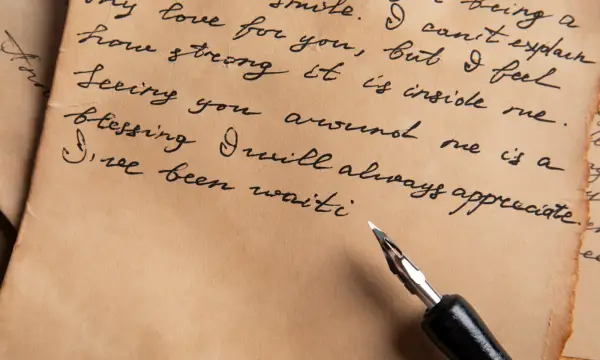 smile. being a
my love for you, but I can't explain
how strong it is inside me. I feel
Seeing you around me is a
blessing I will always appreciate.
I've been waiti